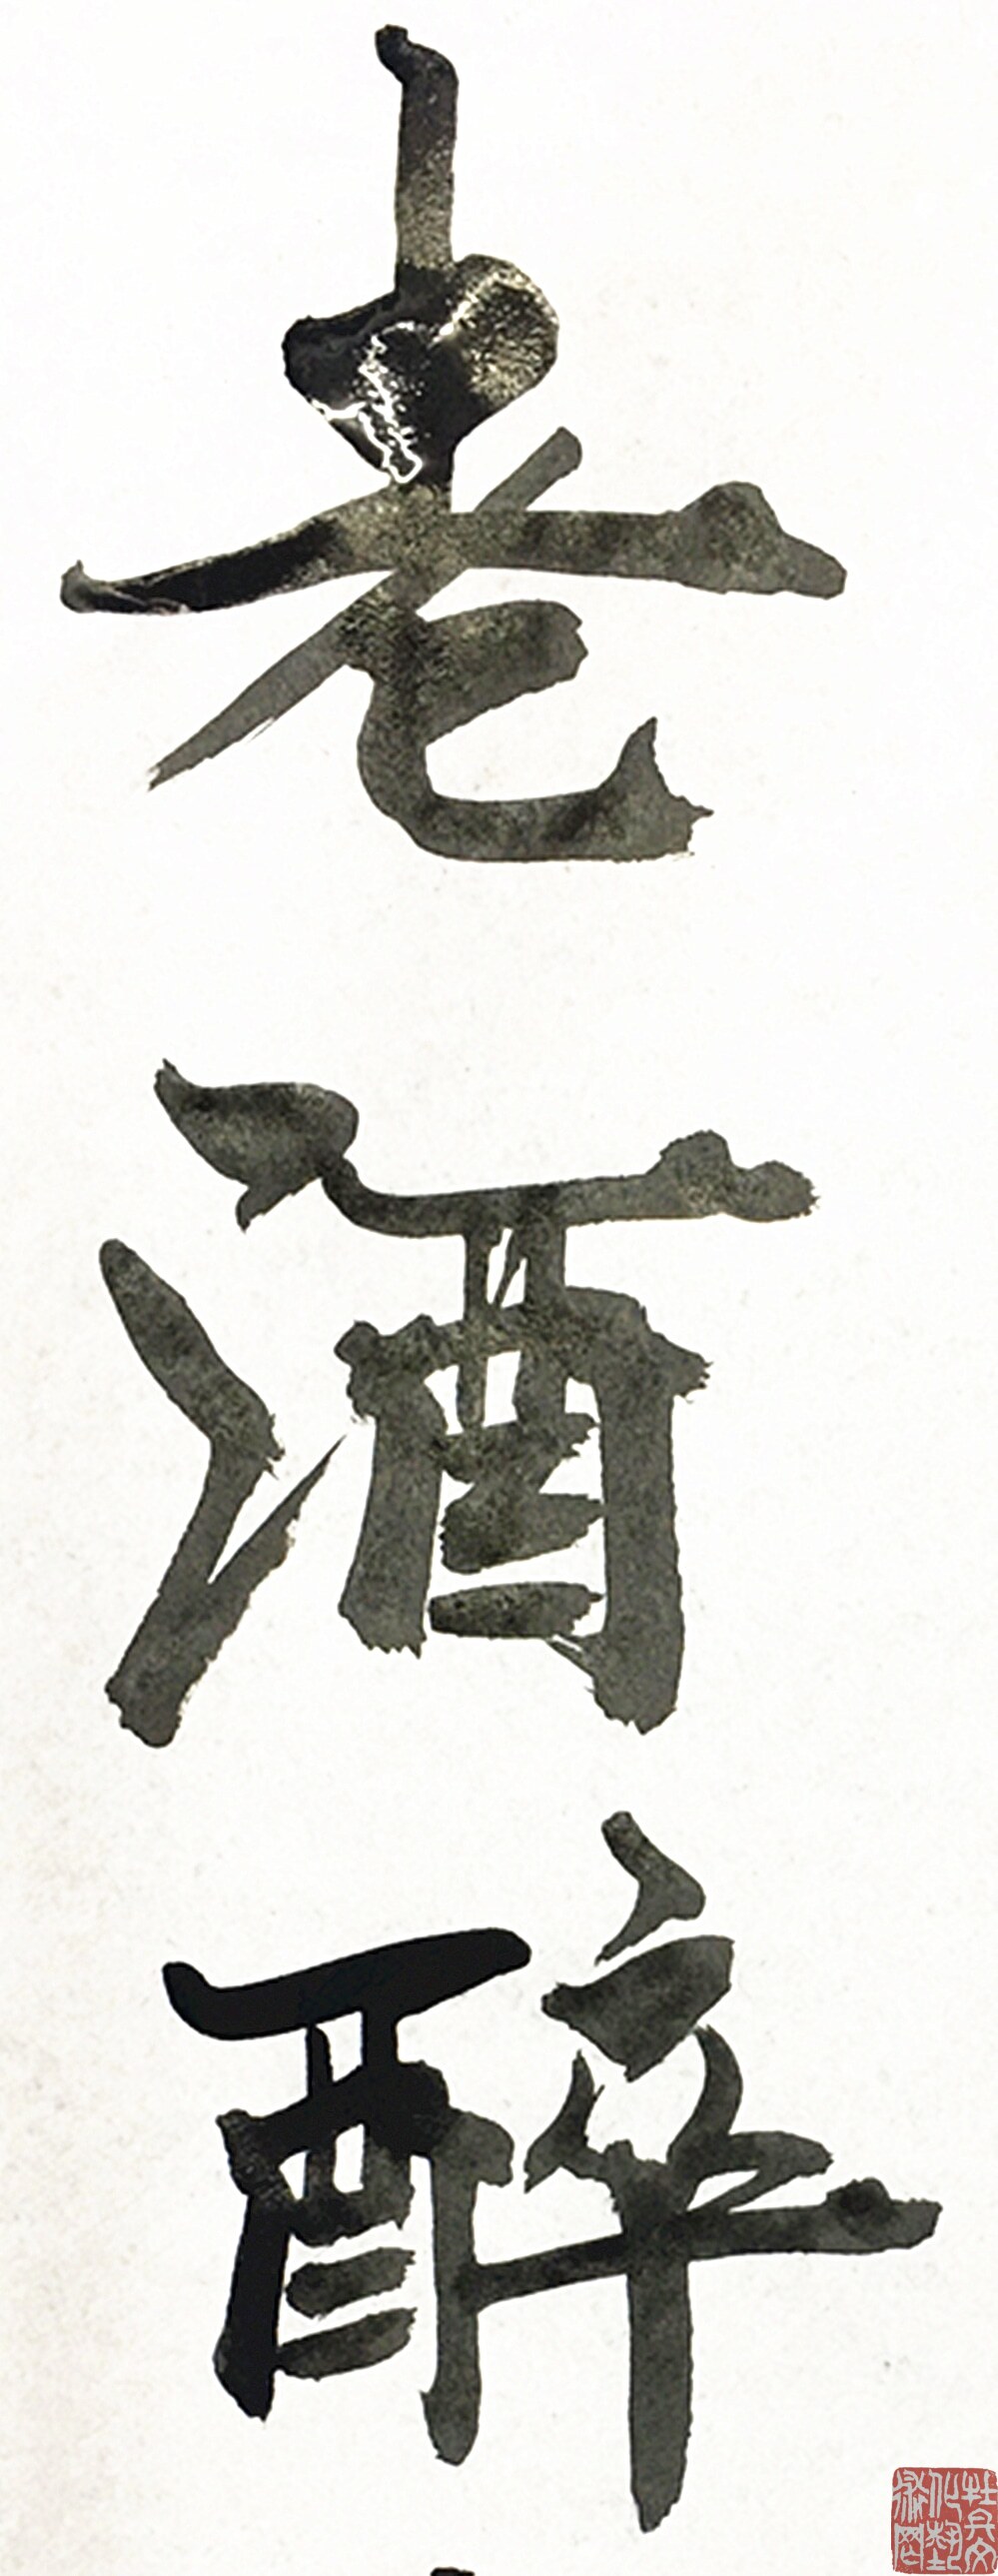 老酒醉